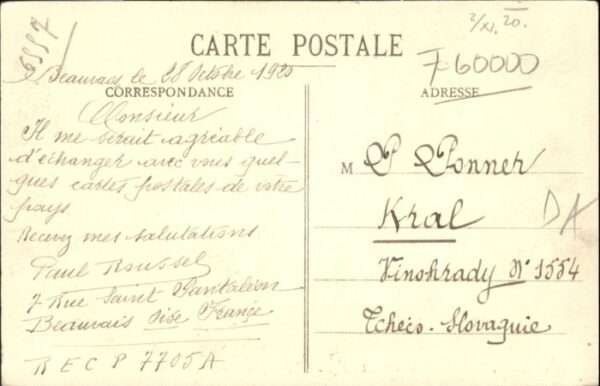 2/XI. 20.
6557
CARTE POSTALE
760000
Beauvais le 28 Octobre 1920
CORRESPONDANCE
ADRESSE
Monsieur
Il me serait agréable
d'échanger avec vous quel-
ques cartes postales de votre
pays
Recevez mes salutations
Paul Roussel
7 Rue Saint Pantaléon
Beauvais Oise France
R E C P 7705A
M P Ponner
Kral
DA
Vinohrady N° 1554
Tchéco-Slovaquie